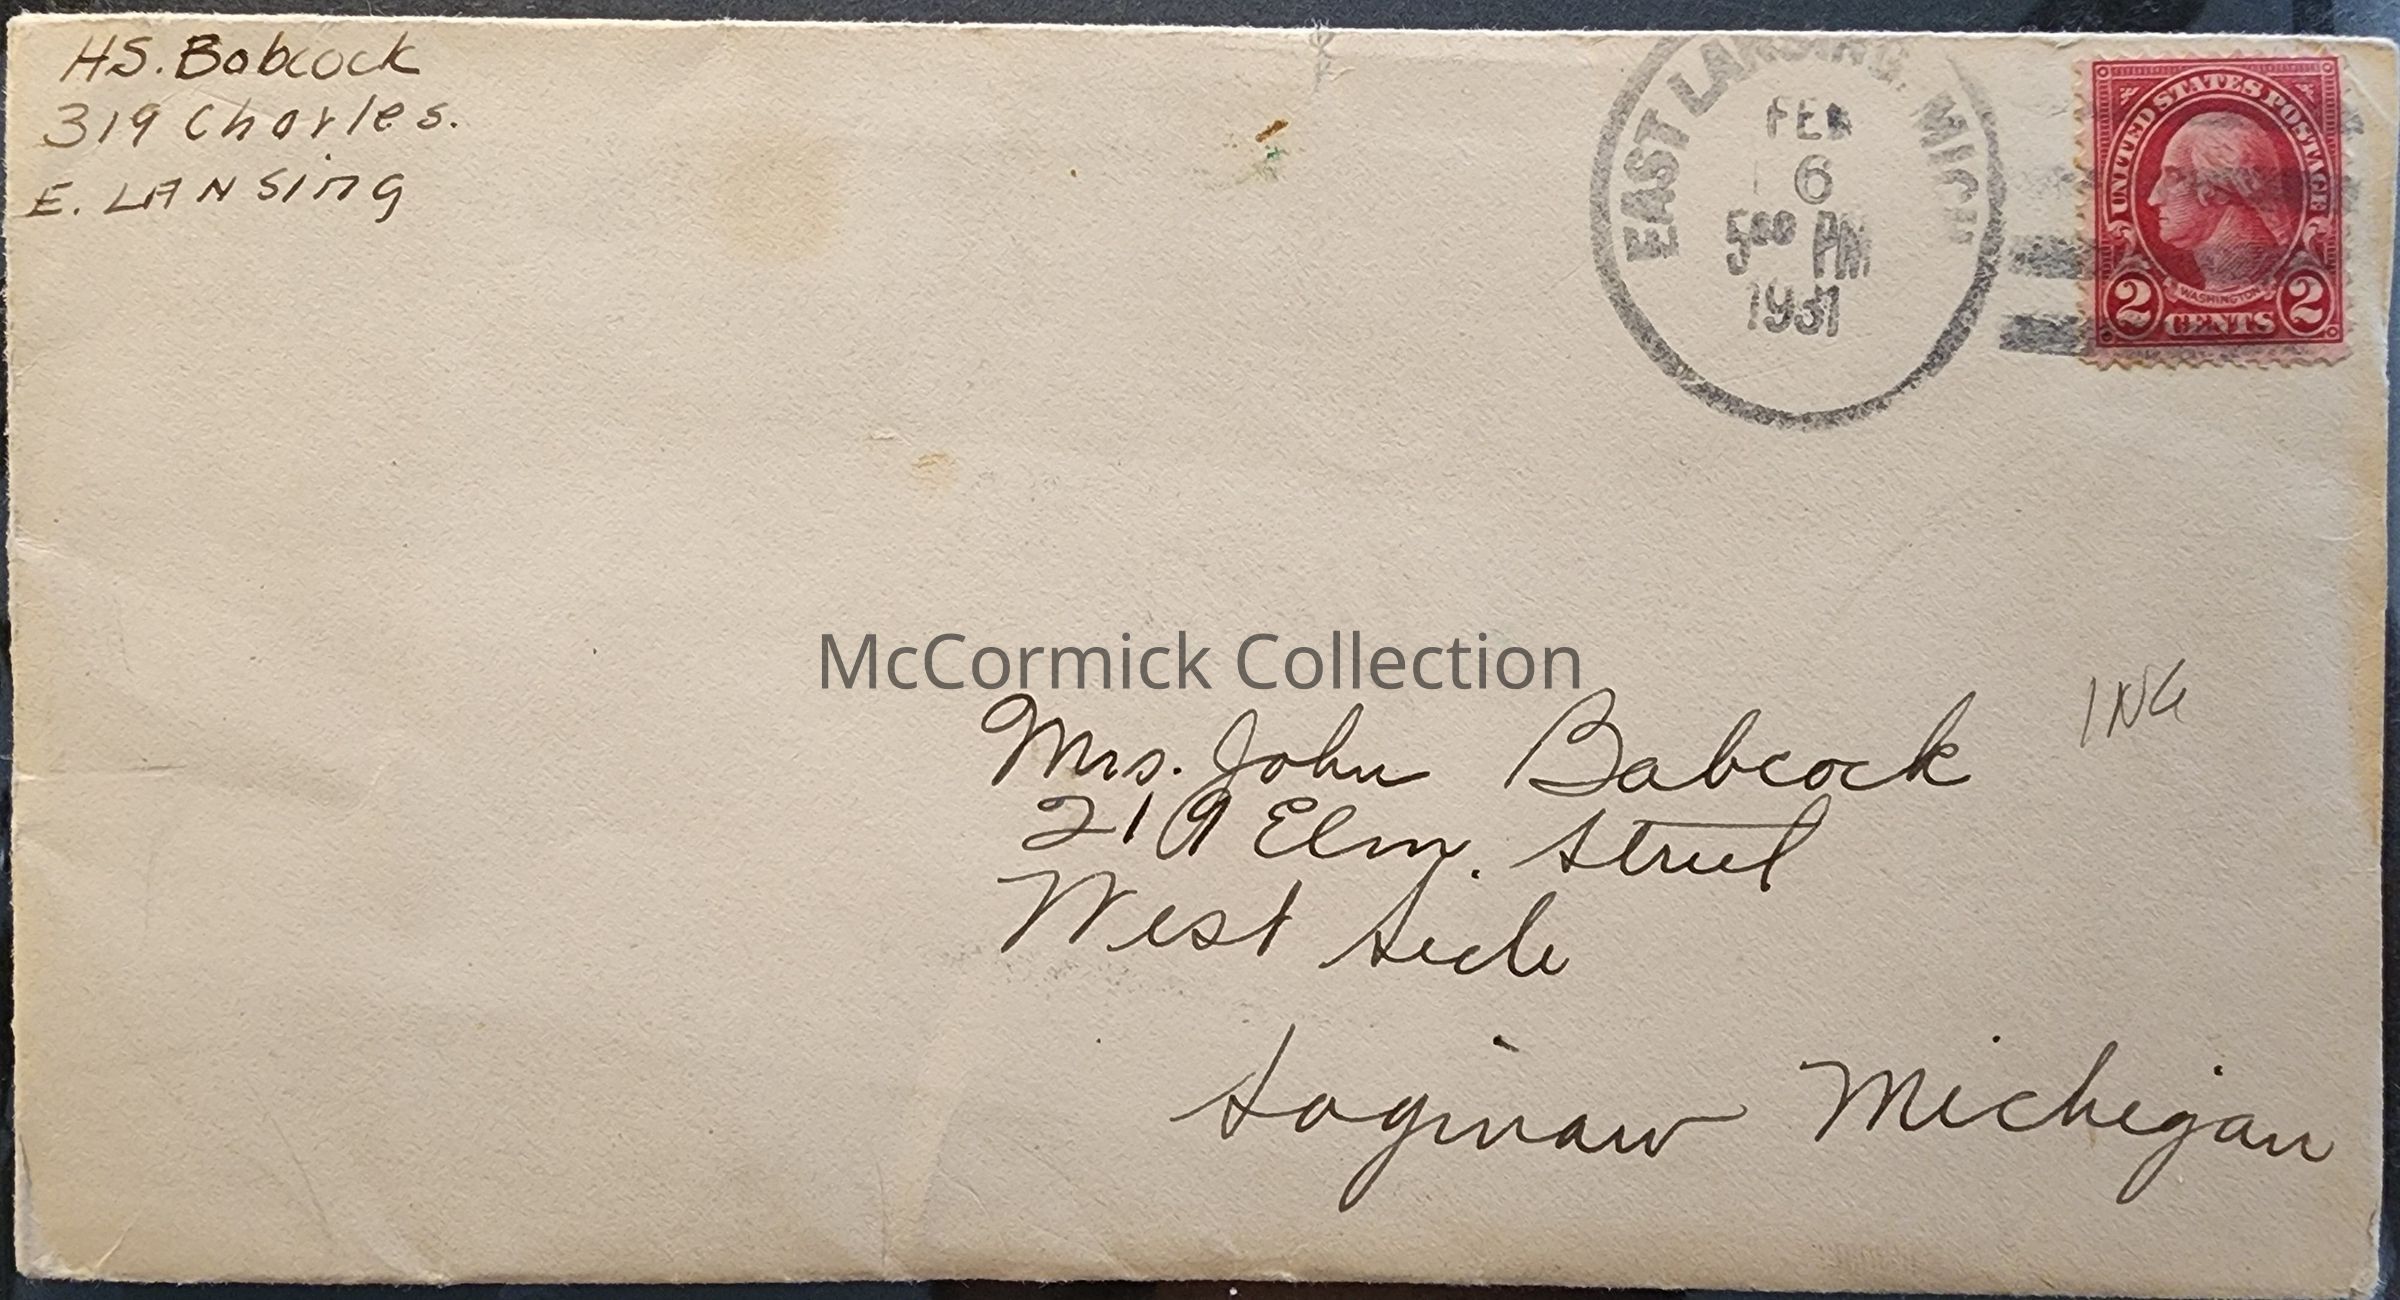 HS. Babcock
319 Charles.
E. LANSing
EAST LANSING, MICH
FEB
6
5 00 PM
1931
UNITED STATES POSTAGE
WASHINGTON
2 CENTS 2
McCormick Collection
Mrs. John Babcock
ING
219 Elm. Street
West Side
Saginaw Michigan